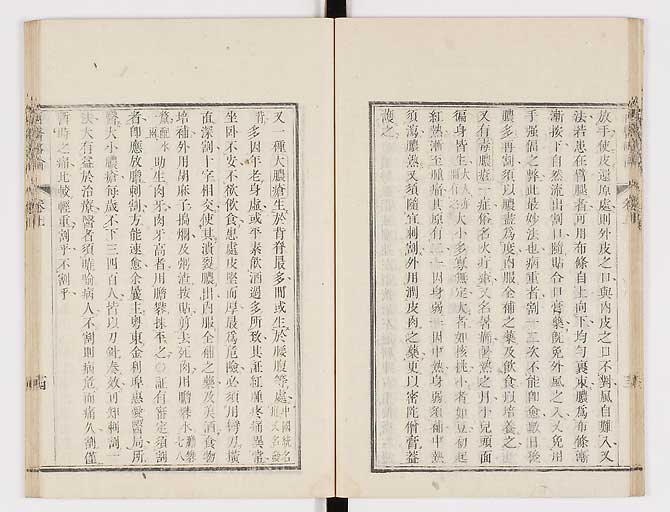 放手使皮還原處則外皮之口與內皮之口不對風自難入又
法若患在臂腿者可用布條自上向下均勻裹束膿為布條漸
漸按下自然流出割口隨貼合口膏藥旣免外風之入又免用
手强傴之弊此最妙法也病重者割一二次不能卽愈數日後
膿多再割須以膿盡為度內服全補之藥及飲食以培養之
又有毒膿瘡一症俗名火疔瘡又名暑癤
小兒頭面
徧身皆生
大小多寡無定大者如核桃小者如豆初起
紅熱漸至腫痛其原有二一因身弱一因中熱身弱須補中熱
須瀉膿熟又須隨宜刺割外用潤皮肉之藥更以密陀僧膏蓋
護之
又一種大膿瘡生於背脊最多間或生於腰腹等處
中國統名
疽又名發
背
多因年老身虛或平素飲酒過多所致其証紅腫疼痛異常
坐卧不安不欲飲食患處皮堅而厚最為危險必須用彎刀橫
直深割十字相交使其潰裂膿出內服全補之藥及美酒食物
培補外用胡麻子搗爛及粥渣按貼剪去死肉用膽礬水
助生肉牙肉牙高者用膽礬抹至之〇証有審定須割
者卽應放膽刺割方能速愈余曩上粵東金利埠惠愛醫局所
醫大小膿瘡每歲不下三四百人皆以刀針奏效可知刺割一
法大有益於治療醫者須曉喻病人不割則病危而痛久割僅
暫時之痛比較輕重割乎不割乎
西醫略論
卷上